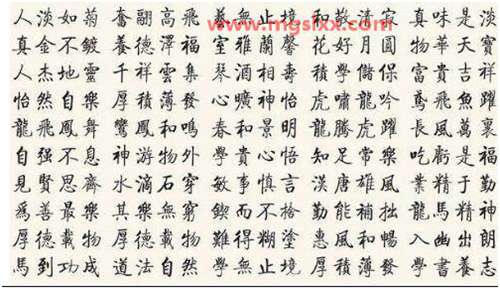 人淡如菊 奮翮高飛 無止境 和敬清寂 真味是淡
真金不鍍 養德澤福 室雅蘭馨 花好月圓 物華天寶
人杰地靈 千祥雲集 琴酒相壽 積學儲保 富貴吉祥
怡然自樂 厚積薄發 心曠神怡 虎嘯龍吟 鳶飛魚躍
龍飛鳳舞 鸞鳳和鳴 春和景明 龍騰虎躍 長風萬裏
自强不息 神游物外 學貴心悟 知足常樂 吃虧是福
見賢思齊 水滴石穿 敏事慎言 漢唐雄風 業精于勤
爲善最樂 其樂無窮 鍥而不捨 勤能補拙 龍馬精神
厚德載物 厚德載物 難得糊塗 惠風和暢 入幽出朗
馬到功成 道法自然 學無止境 厚積薄發 學書養志
www.mgsixx.com